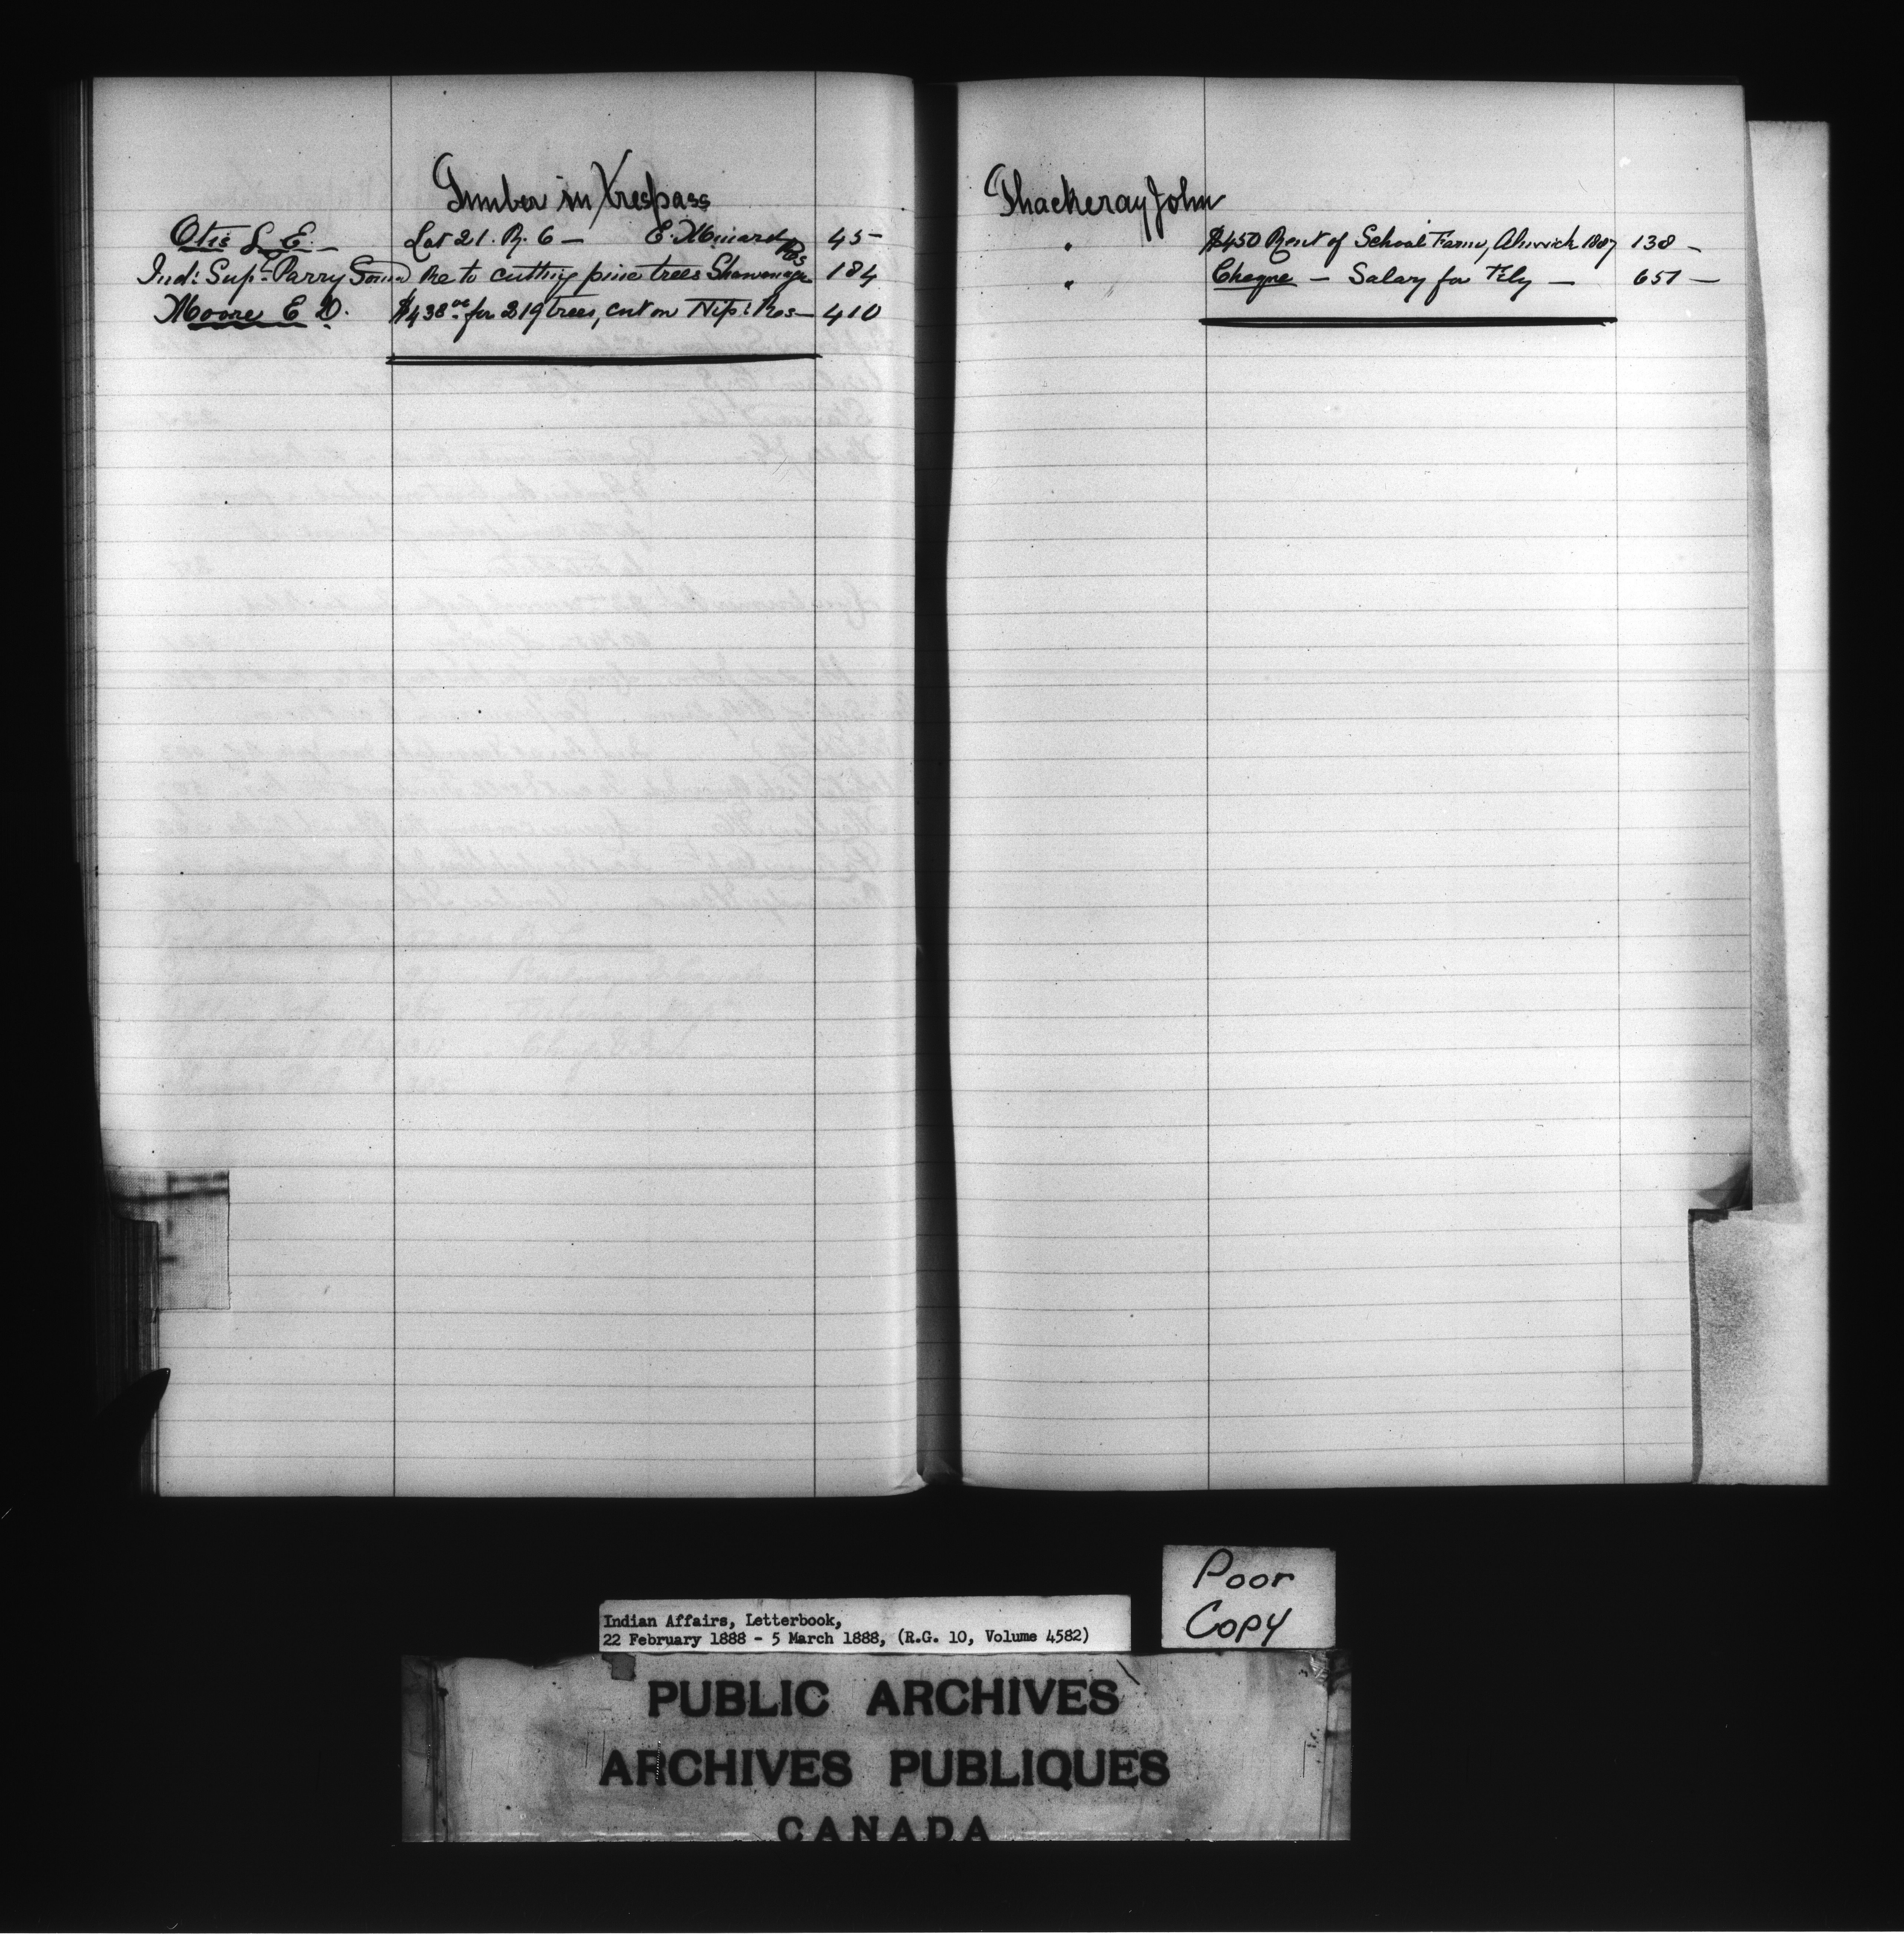 Timber in Trespass
Otis L. E. — Lot 21. R. 6 — E. Minard 45 —
Ind: Supt. Parry Sound Re to cutting pine trees Shawanaga Res 184
Moore E. D. $438.00 for 219 trees, cut on Nip: Res — 410
Thackeray John
" $450 Rent of School Farm, Alnwick 1887 138 —
" Cheque — Salary for Feby — 651 —
Indian Affairs, Letterbook,
22 February 1888 - 5 March 1888, (R.G. 10, Volume 4582)
Poor
Copy
PUBLIC ARCHIVES
ARCHIVES PUBLIQUES
CANADA